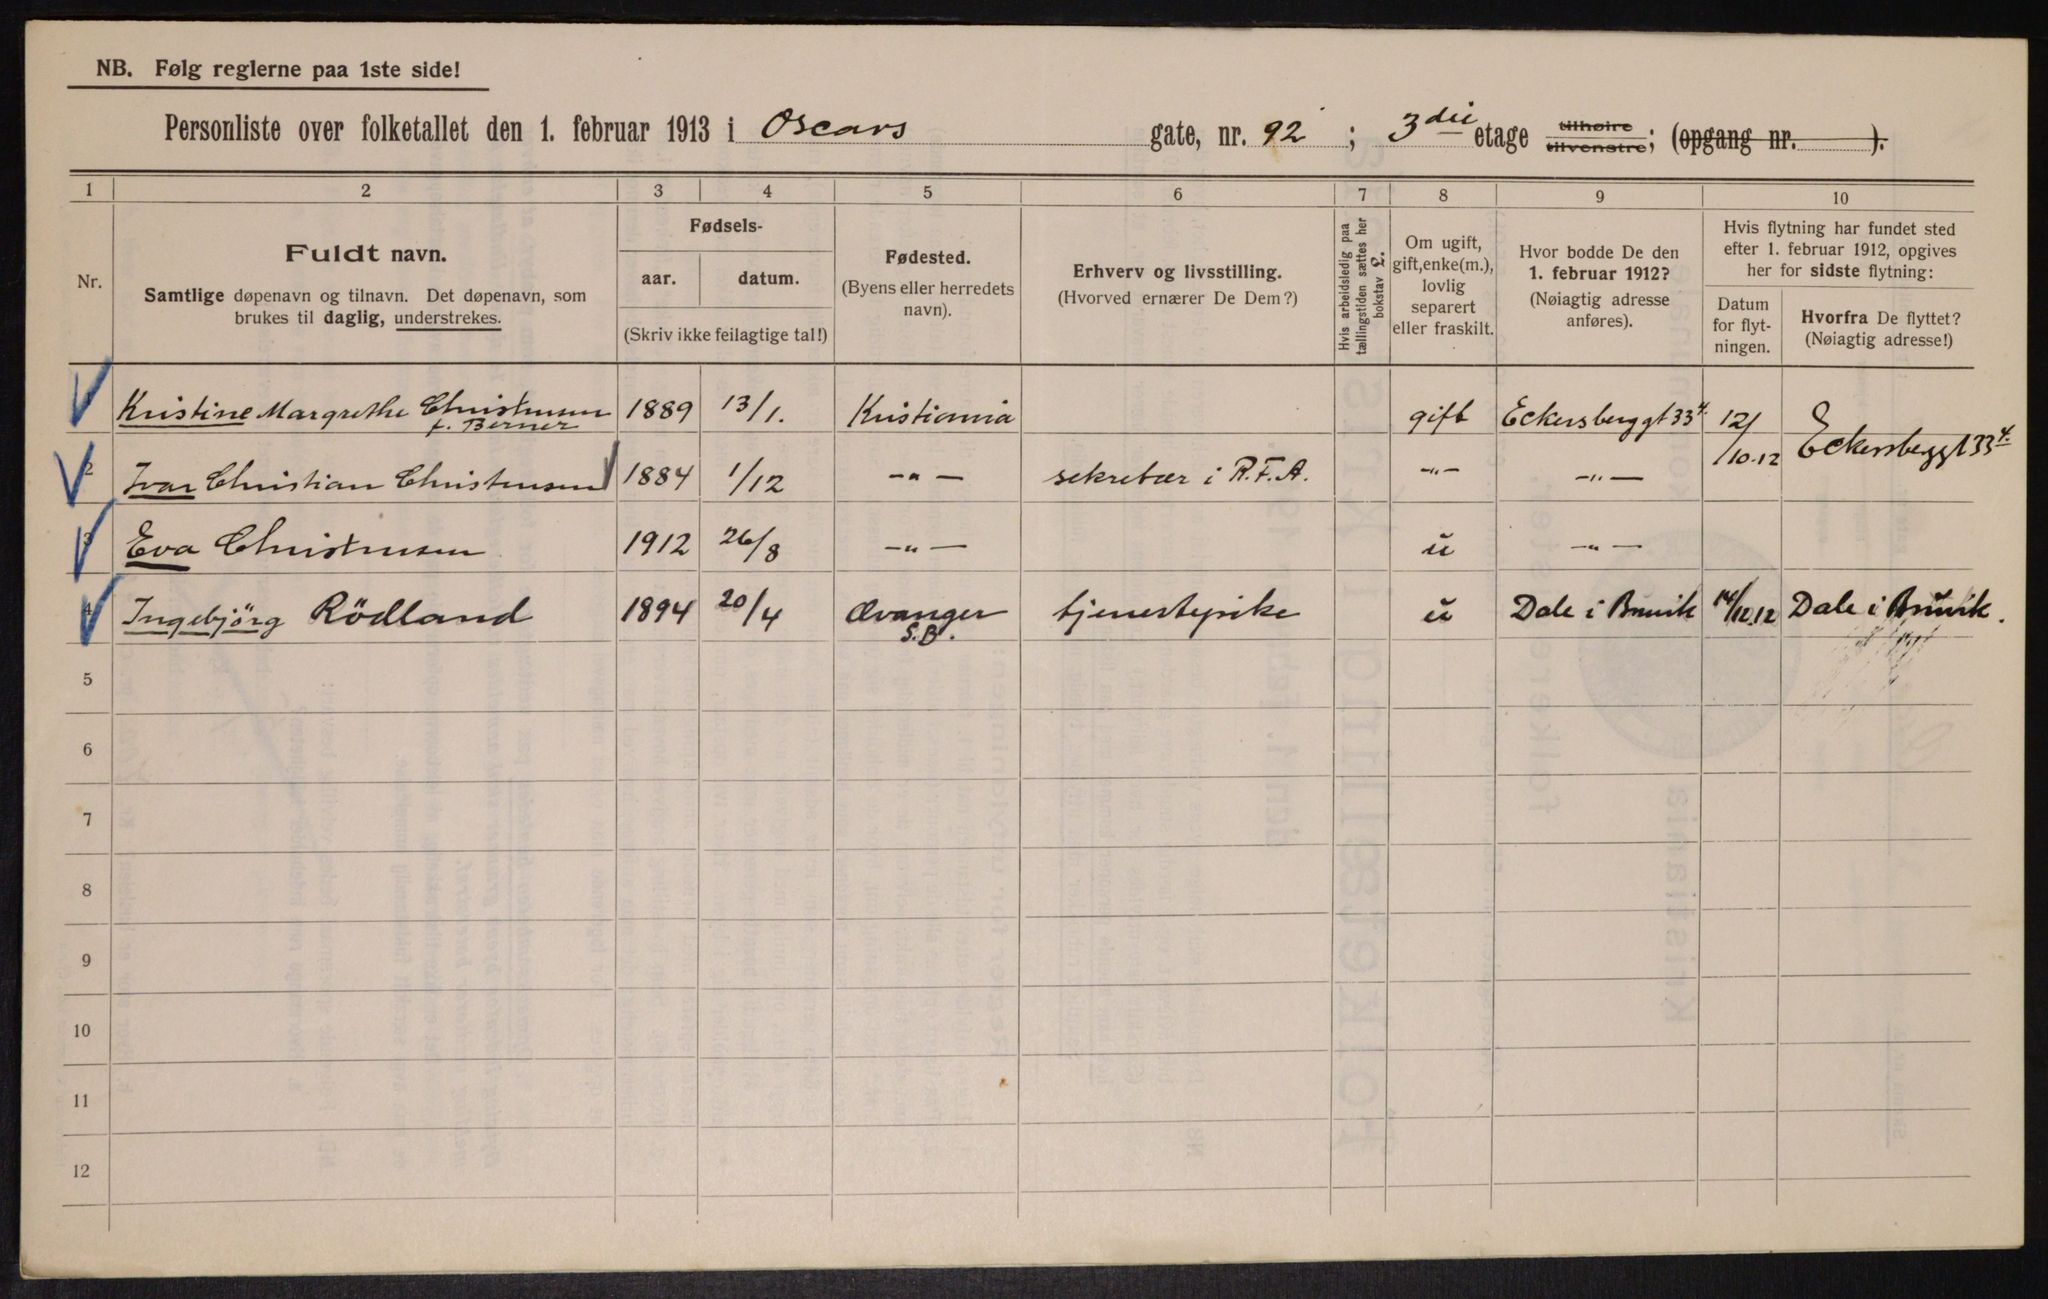 NB. Følg reglerne paa 1ste side!
Personliste over folketallet den 1. februar 1913 i Oscars gate, nr. 92 ; 3die etage tilhøire tilvenstre; (opgang nr. ).
1 2 3 4 5 6 7 8 9 10
Nr.
Fuldt navn.
Samtlige døpenavn og tilnavn. Det døpenavn, som
brukes til daglig, understrekes.
Fødsels-
aar. datum.
(Skriv ikke feilagtige tal!)
Fødested.
(Byens eller herredets
navn).
Erhverv og livsstilling.
(Hvorved ernærer De Dem?)
Hvis arbeidsledig paa
tællingstiden sættes her
bokstav L.
Om ugift,
gift, enke(m.),
lovlig
separert
eller fraskilt.
Hvor bodde De den
1. februar 1912?
(Nøiagtig adresse
anføres).
Hvis flytning har fundet sted
efter 1. februar 1912, opgives
her for sidste flytning:
Datum
for flyt-
ningen.
Hvorfra De flyttet?
(Nøiagtig adresse!)
Kristine Margrethe Christensen 1889 13/1. Kristiania gift Eckersberggt 33 4. 12/10.12 Eckersberggt 33 4.
f. Berner
2 Ivar Christian Christensen 1884 1/12 -"- sekretær i R.F.A. -"- -"-
3 Eva Christensen 1912 26/8 -"- u -"-
4 Ingebjörg Rödland 1894 20/4 Evanger tjenestepike u Dale i Bruvik 14/12.12 Dale i Bruvik.
S.B.
5
6
7
8
9
10
11
12